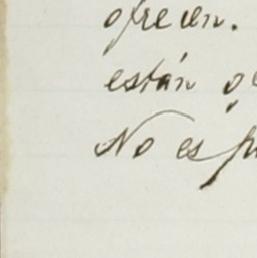 ofrecen.
están
No es